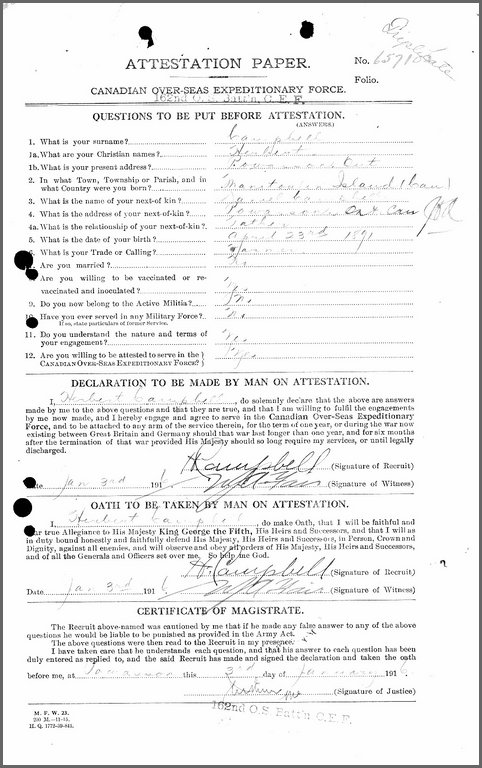 Triplicate
ATTESTATION PAPER.
No. 657180
Folio.
CANADIAN OVER-SEAS EXPEDITIONARY FORCE.
162nd O. S. Batt'n, C. E. F.
QUESTIONS TO BE PUT BEFORE ATTESTATION.
(ANSWERS)
1. What is your surname? Campbell
1a. What are your Christian names? Herbert
1b. What is your present address? Ont
2. In what Town, Township or Parish, and in
what Country were you born? Island (Can)
3. What is the name of your next-of kin?
4. What is the address of your next-of-kin? Ont Can
4a. What is the relationship of your next-of-kin? Father
5. What is the date of your birth? April 23rd 1891
6. What is your Trade or Calling? Farmer
7. Are you married?
8. Are you willing to be vaccinated or re-
vaccinated and inoculated?
9. Do you now belong to the Active Militia?
10. Have you ever served in any Military Force?
If so, state particulars of former Service.
11. Do you understand the nature and terms of
your engagement?
12. Are you willing to be attested to serve in the
CANADIAN OVER-SEAS EXPEDITIONARY FORCE?
DECLARATION TO BE MADE BY MAN ON ATTESTATION.
I, Herbert Campbell, do solemnly declare that the above are answers
made by me to the above questions and that they are true, and that I am willing to fulfil the engagements
by me now made, and I hereby engage and agree to serve in the Canadian Over-Seas Expeditionary
Force, and to be attached to any arm of the service therein, for the term of one year, or during the war now
existing between Great Britain and Germany should that war last longer than one year, and for six months
after the termination of that war provided His Majesty should so long require my services, or until legally
discharged.
H Campbell (Signature of Recruit)
Date Jan 3rd 191 (Signature of Witness)
OATH TO BE TAKEN BY MAN ON ATTESTATION.
I, Herbert Campbell, do make Oath, that I will be faithful and
bear true Allegiance to His Majesty King George the Fifth, His Heirs and Successors, and that I will as
in duty bound honestly and faithfully defend His Majesty, His Heirs and Successors, in Person, Crown and
Dignity, against all enemies, and will observe and obey all orders of His Majesty, His Heirs and Successors,
and of all the Generals and Officers set over me. So help me God.
H Campbell (Signature of Recruit)
Date Jan 3rd 1916 (Signature of Witness)
CERTIFICATE OF MAGISTRATE.
The Recruit above-named was cautioned by me that if he made any false answer to any of the above
questions he would be liable to be punished as provided in the Army Act.
The above questions were then read to the Recruit in my presence.
I have taken care that he understands each question, and that his answer to each question has been
duly entered as replied to, and the said Recruit has made and signed the declaration and taken the oath
before me, at this 3rd day of January 1916
(Signature of Justice)
162nd O.S. Batt'n C.E.F.
M. F. W. 23.
200 M.—11-15.
H. Q. 1772-39-841.